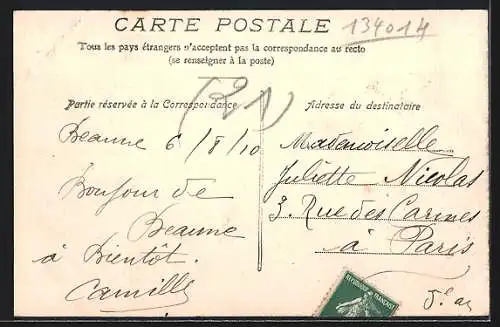 CARTE POSTALE
134014
Tous les pays étrangers n'acceptent pas la correspondance au recto
(se renseigner à la poste)
(21)
Partie réservée à la Correspondance
Adresse du destinataire
Beaune 6/8/10
Bonjour de
Beaune
à Bientôt.
Camille
Mademoiselle
Juliette Nicolas
3. Rue des Carmes
à Paris
REPUBLIQUE FRANÇAISE